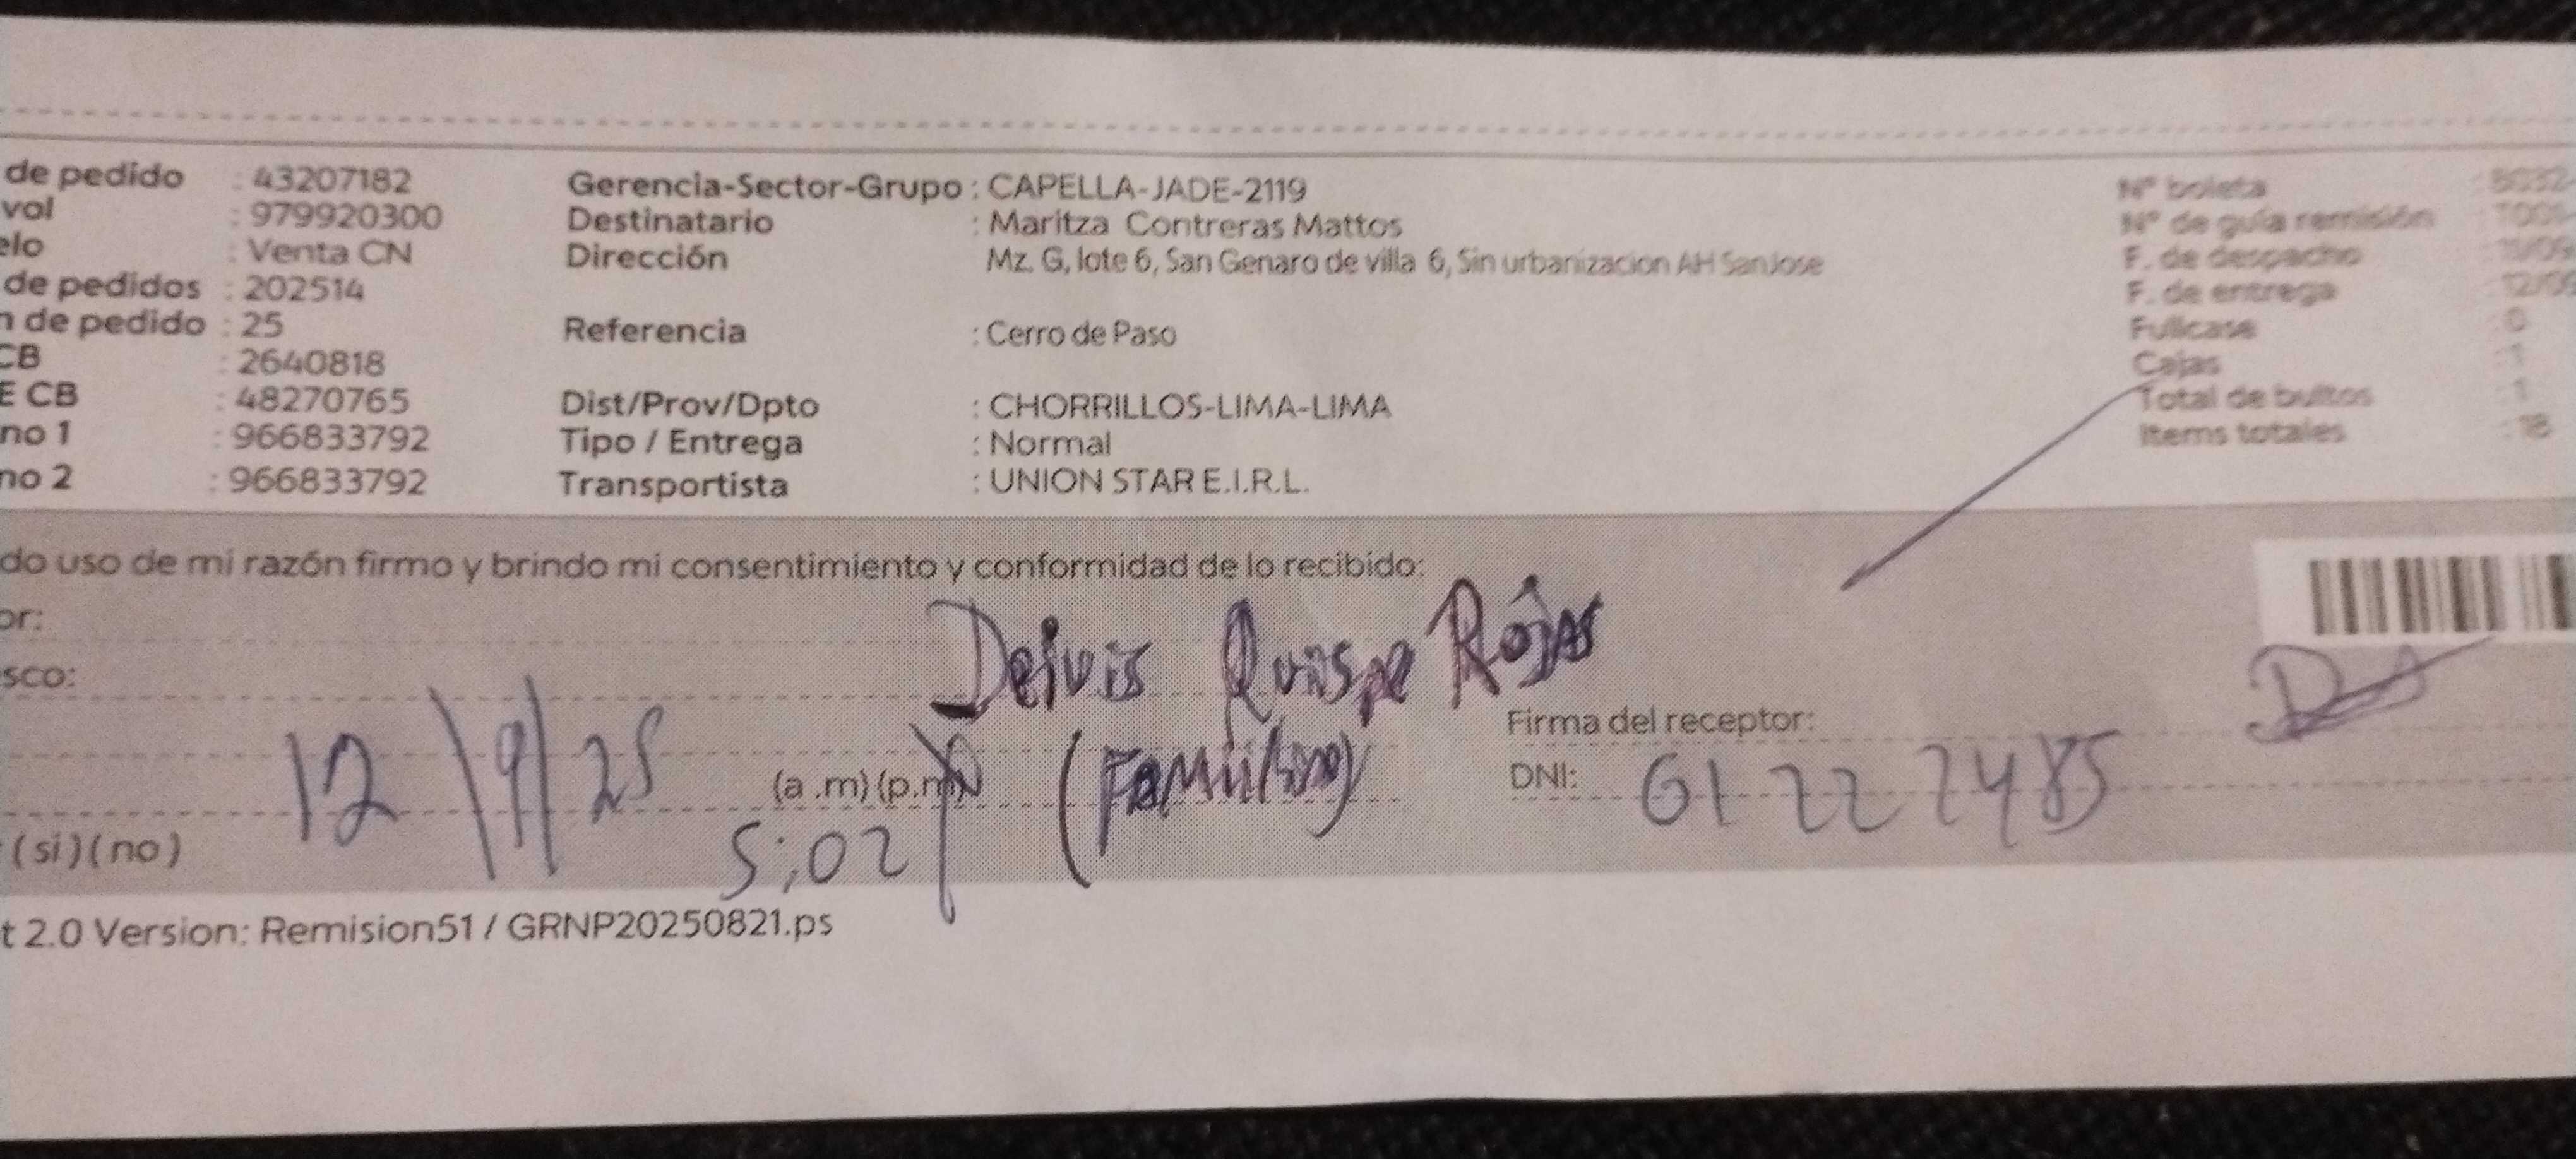 de pedido : 43207182 Gerencia-Sector-Grupo : CAPELLA-JADE-2119 Nº boleta
vol : 979920300 Destinatario : Maritza Contreras Mattos Nº de guía remisión
elo : Venta CN Dirección Mz. G, lote 6, San Genaro de villa 6, Sin urbanizacion AH SanJose F. de despacho
de pedidos : 202514 F. de entrega
n de pedido : 25 Referencia : Cerro de Paso Fullcase : 0
CB : 2640818 Cajas : 1
E CB : 48270765 Dist/Prov/Dpto : CHORRILLOS-LIMA-LIMA Total de bultos : 1
no 1 : 966833792 Tipo / Entrega : Normal Items totales : 18
no 2 : 966833792 Transportista : UNION STAR E.I.R.L.
do uso de mi razón firmo y brindo mi consentimiento y conformidad de lo recibido:
or:
Deivis Quispe Rojas
sco:
Firma del receptor:
12/9/25 (a .m) (p.m) DNI: 61222485
5:02
(si) (no)
t 2.0 Version: Remision51 / GRNP20250821.ps